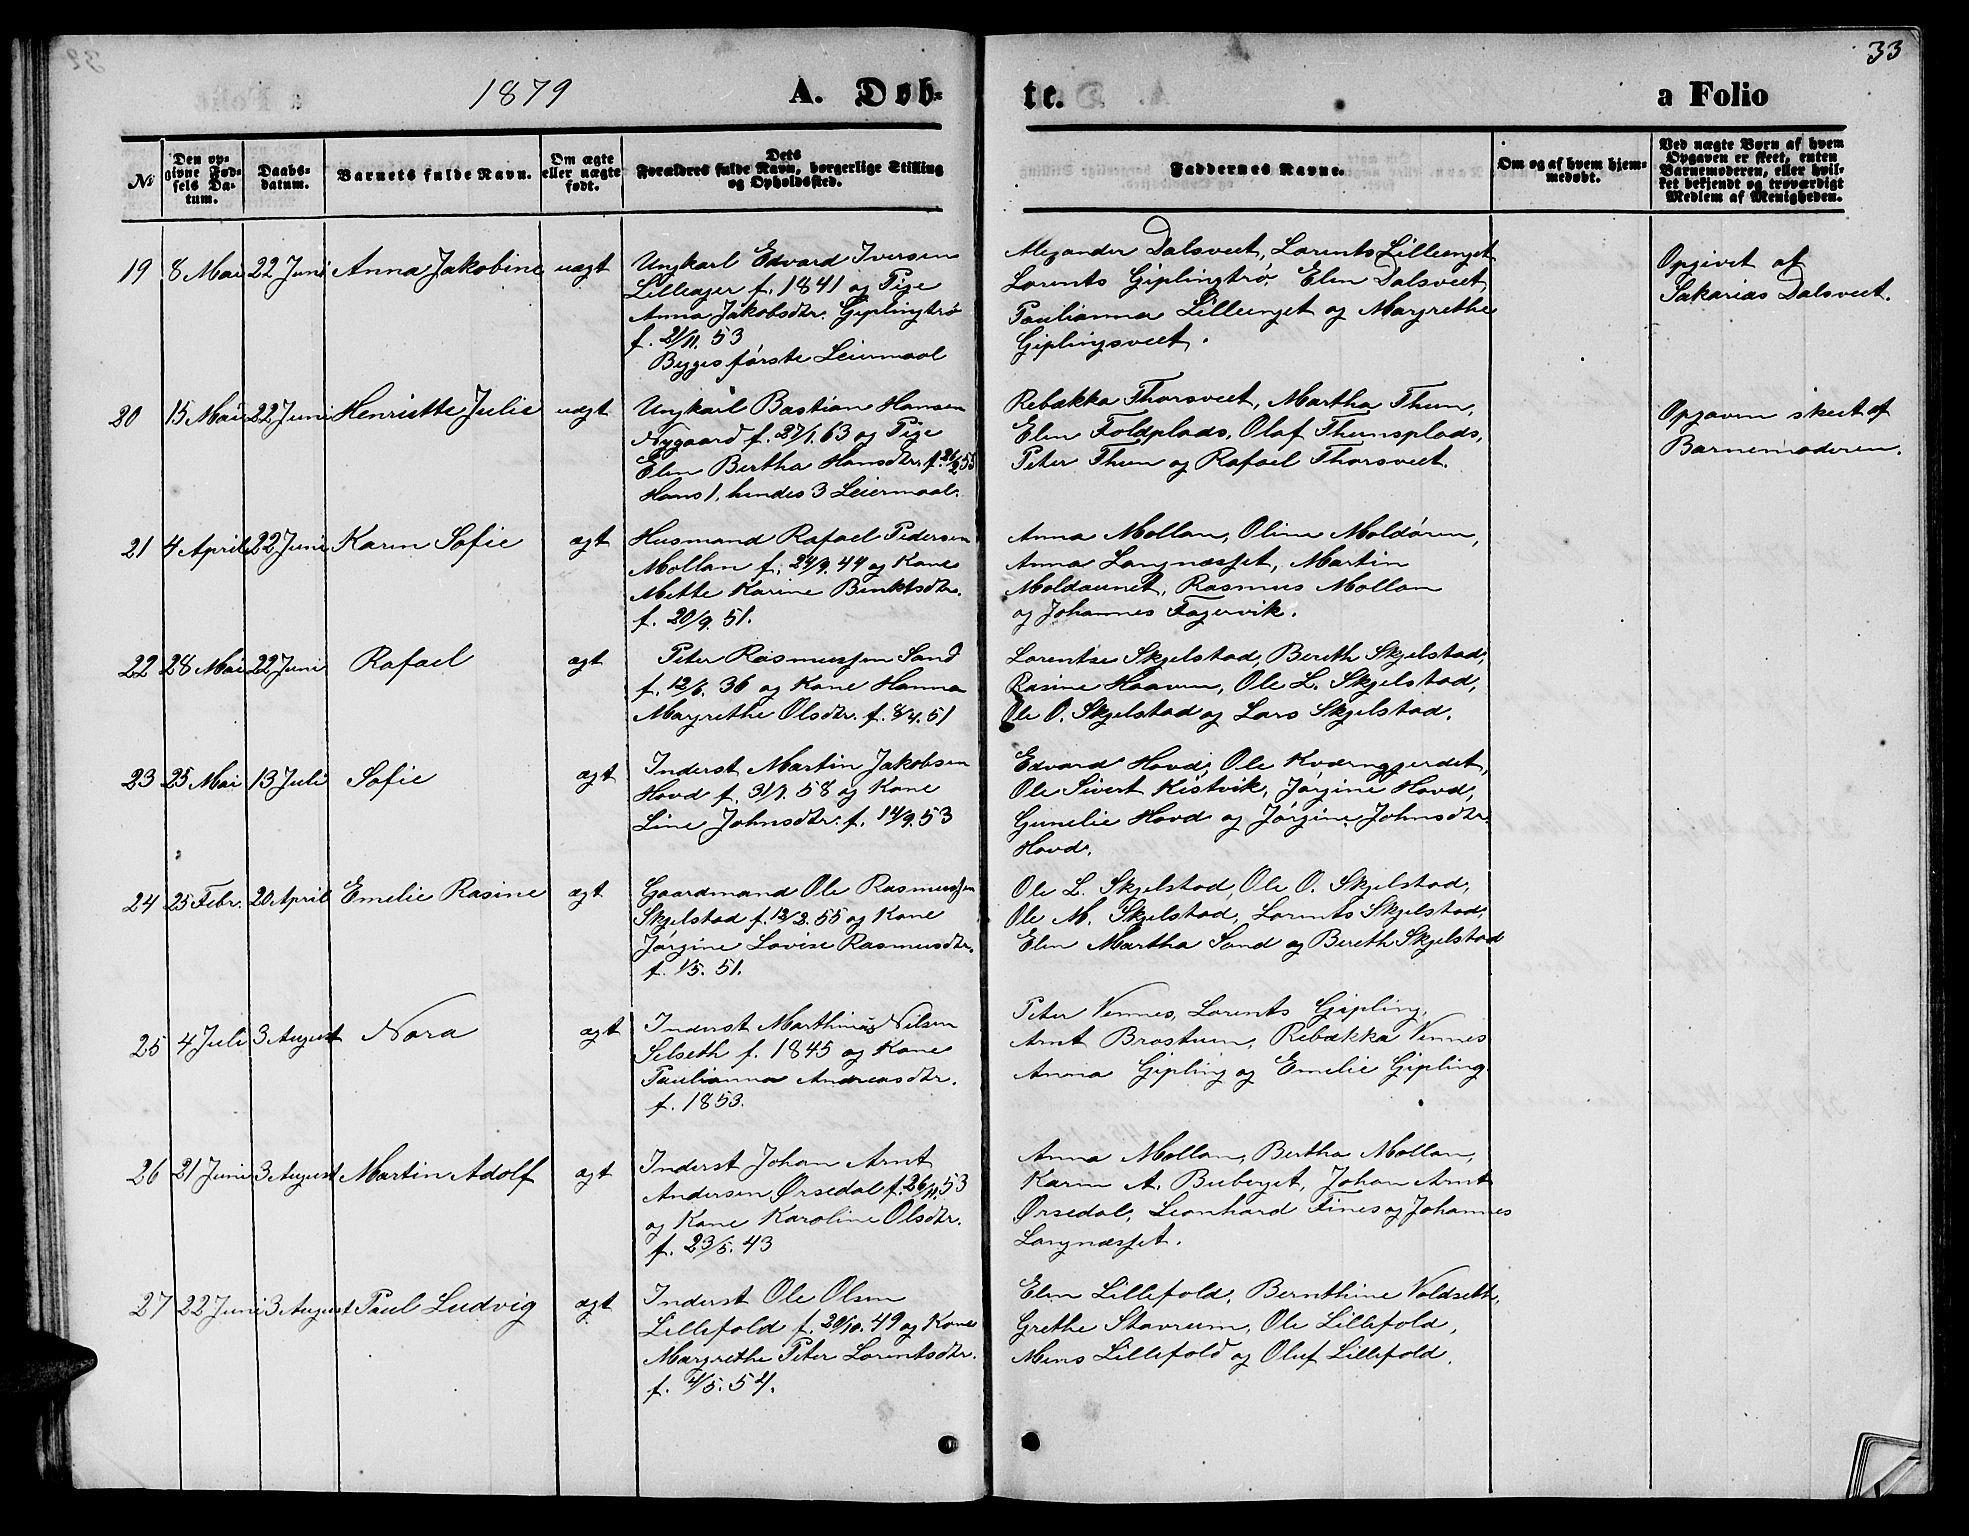 33
1879 A. Døb- te. a Folio
No
Den opgivne Fødsels Datum.
Daabsdatum.
Barnets fulde Navn.
Om ægte eller uægte født.
Dets Forældres fulde Navn, borgerlige Stilling og Opholdssted.
Faddernes Navne.
Om og af hvem hjemmedøbt.
Ved uægte Børn af hvem Opgaven er skeet, enten Barnemoderen, eller hvilket bekjendt og troværdigt Medlem af Menigheden.
19 8 Mai 22 Juni Anna Jakobine uægt
Ungkarl Edvard Iversen
Lilleager f. 1841 og Pige
Anna Jakobsdtr. Giplingtrø
f. 21/11. 53
Begges første Leiermaal
Alexander Dalsveet, Lorents Lilleenget
Lorents Giplingtrø, Elen Dalsveet,
Paulianna Lilleenget og Margrethe
Giplingsveet.
Opgivet af
Sakarias Dalsveet.
20 15 Mai 22 Juni Henriette Julie uægt
Ungkarl Bastian Hansen
Nygaard f. 27/1. 63 og Pige
Elen Bertha Hansdtr. f. 26/2 55
Hans 1, hendes 3 Leiermaal.
Rebækka Thorsveet, Martha Thun,
Elen Foldplads, Olaf Thunsplads,
Peter Thun og Rafael Thorsveet.
Opgaven skeet af
Barnemoderen.
21 4 April 22 Juni Karen Sofie ægt
Husmand Rafael Pedersen
Mollan f. 24/9. 44 og Kone
Mette Karine Benktsdtr.
f. 20/9. 51.
Anna Mollan, Oline Moldøren,
Anna Langnæsset, Martin
Moldaunet, Rasmus Mollan
og Johannes Fagervik.
22 28 Mai 22 Juni Rafael ægt
Peter Rasmussen Sand
f. 12/6. 36 og Kone Hanna
Margrethe Olsdtr. f. 8/4. 51
Lorentse Skjelstad, Bereth Skjelstad,
Rasine Haaven, Ole L. Skjelstad,
Ole O. Skjelstad og Lars Skjelstad.
23 25 Mai 13 Juli Sofie ægt
Inderst Martin Jakobsen
Hovd f. 31/7. 58 og Kone
Line Johnsdtr. f. 14/9. 53
Edvard Hovd, Ole Kværngjerdet,
Ole Sivert Kistvik, Jørgine Hovd,
Gunelie Hovd og Jørgine Johnsdtr.
Hovd.
24 25 Febr. 20 April Emelie Rasine ægt
Gaardmand Ole Rasmussen
Skjelstad f. 12/2. 55 og Kone
Jørgine Lovise Rasmusdtr.
f. 1/5. 51.
Ole L. Skjelstad, Ole O. Skjelstad,
Ole M. Skjelstad, Lorents Skjelstad,
Elen Martha Sand og Bereth Skjelstad
25 4 Juli 3 August Nora ægt
Inderst Marthinus Nilsen
Selseth f. 1845 og Kone
Paulianna Andreasdtr.
f. 1853.
Peter Vennes, Lorents Gipling,
Arnt Brostum, Rebækka Vennes
Anna Gipling og Emelie Gipling
26 21 Juni 3 August Martin Adolf ægt
Inderst Johan Arnt
Andersen Ørsedal f. 26/11. 53
og Kone Karoline Olsdtr.
f. 23/5. 43
Anna Mollan, Bertha Mollan,
Karen A. Buberget, Johan Arnt
Ørsedal, Leonhard Fines og Johannes
Langnæsset.
27 22 Juni 3 August Paul Ludvig ægt
Inderst Ole Olsen
Lillefold f. 20/10. 49 og Kone
Margrethe Peter Lorentsdtr.
f. 4/5. 54.
Elen Lillefold, Bernthine Voldseth,
Grethe Stavrum, Ole Lillefold,
Mens Lillefold og Oluf Lillefold.